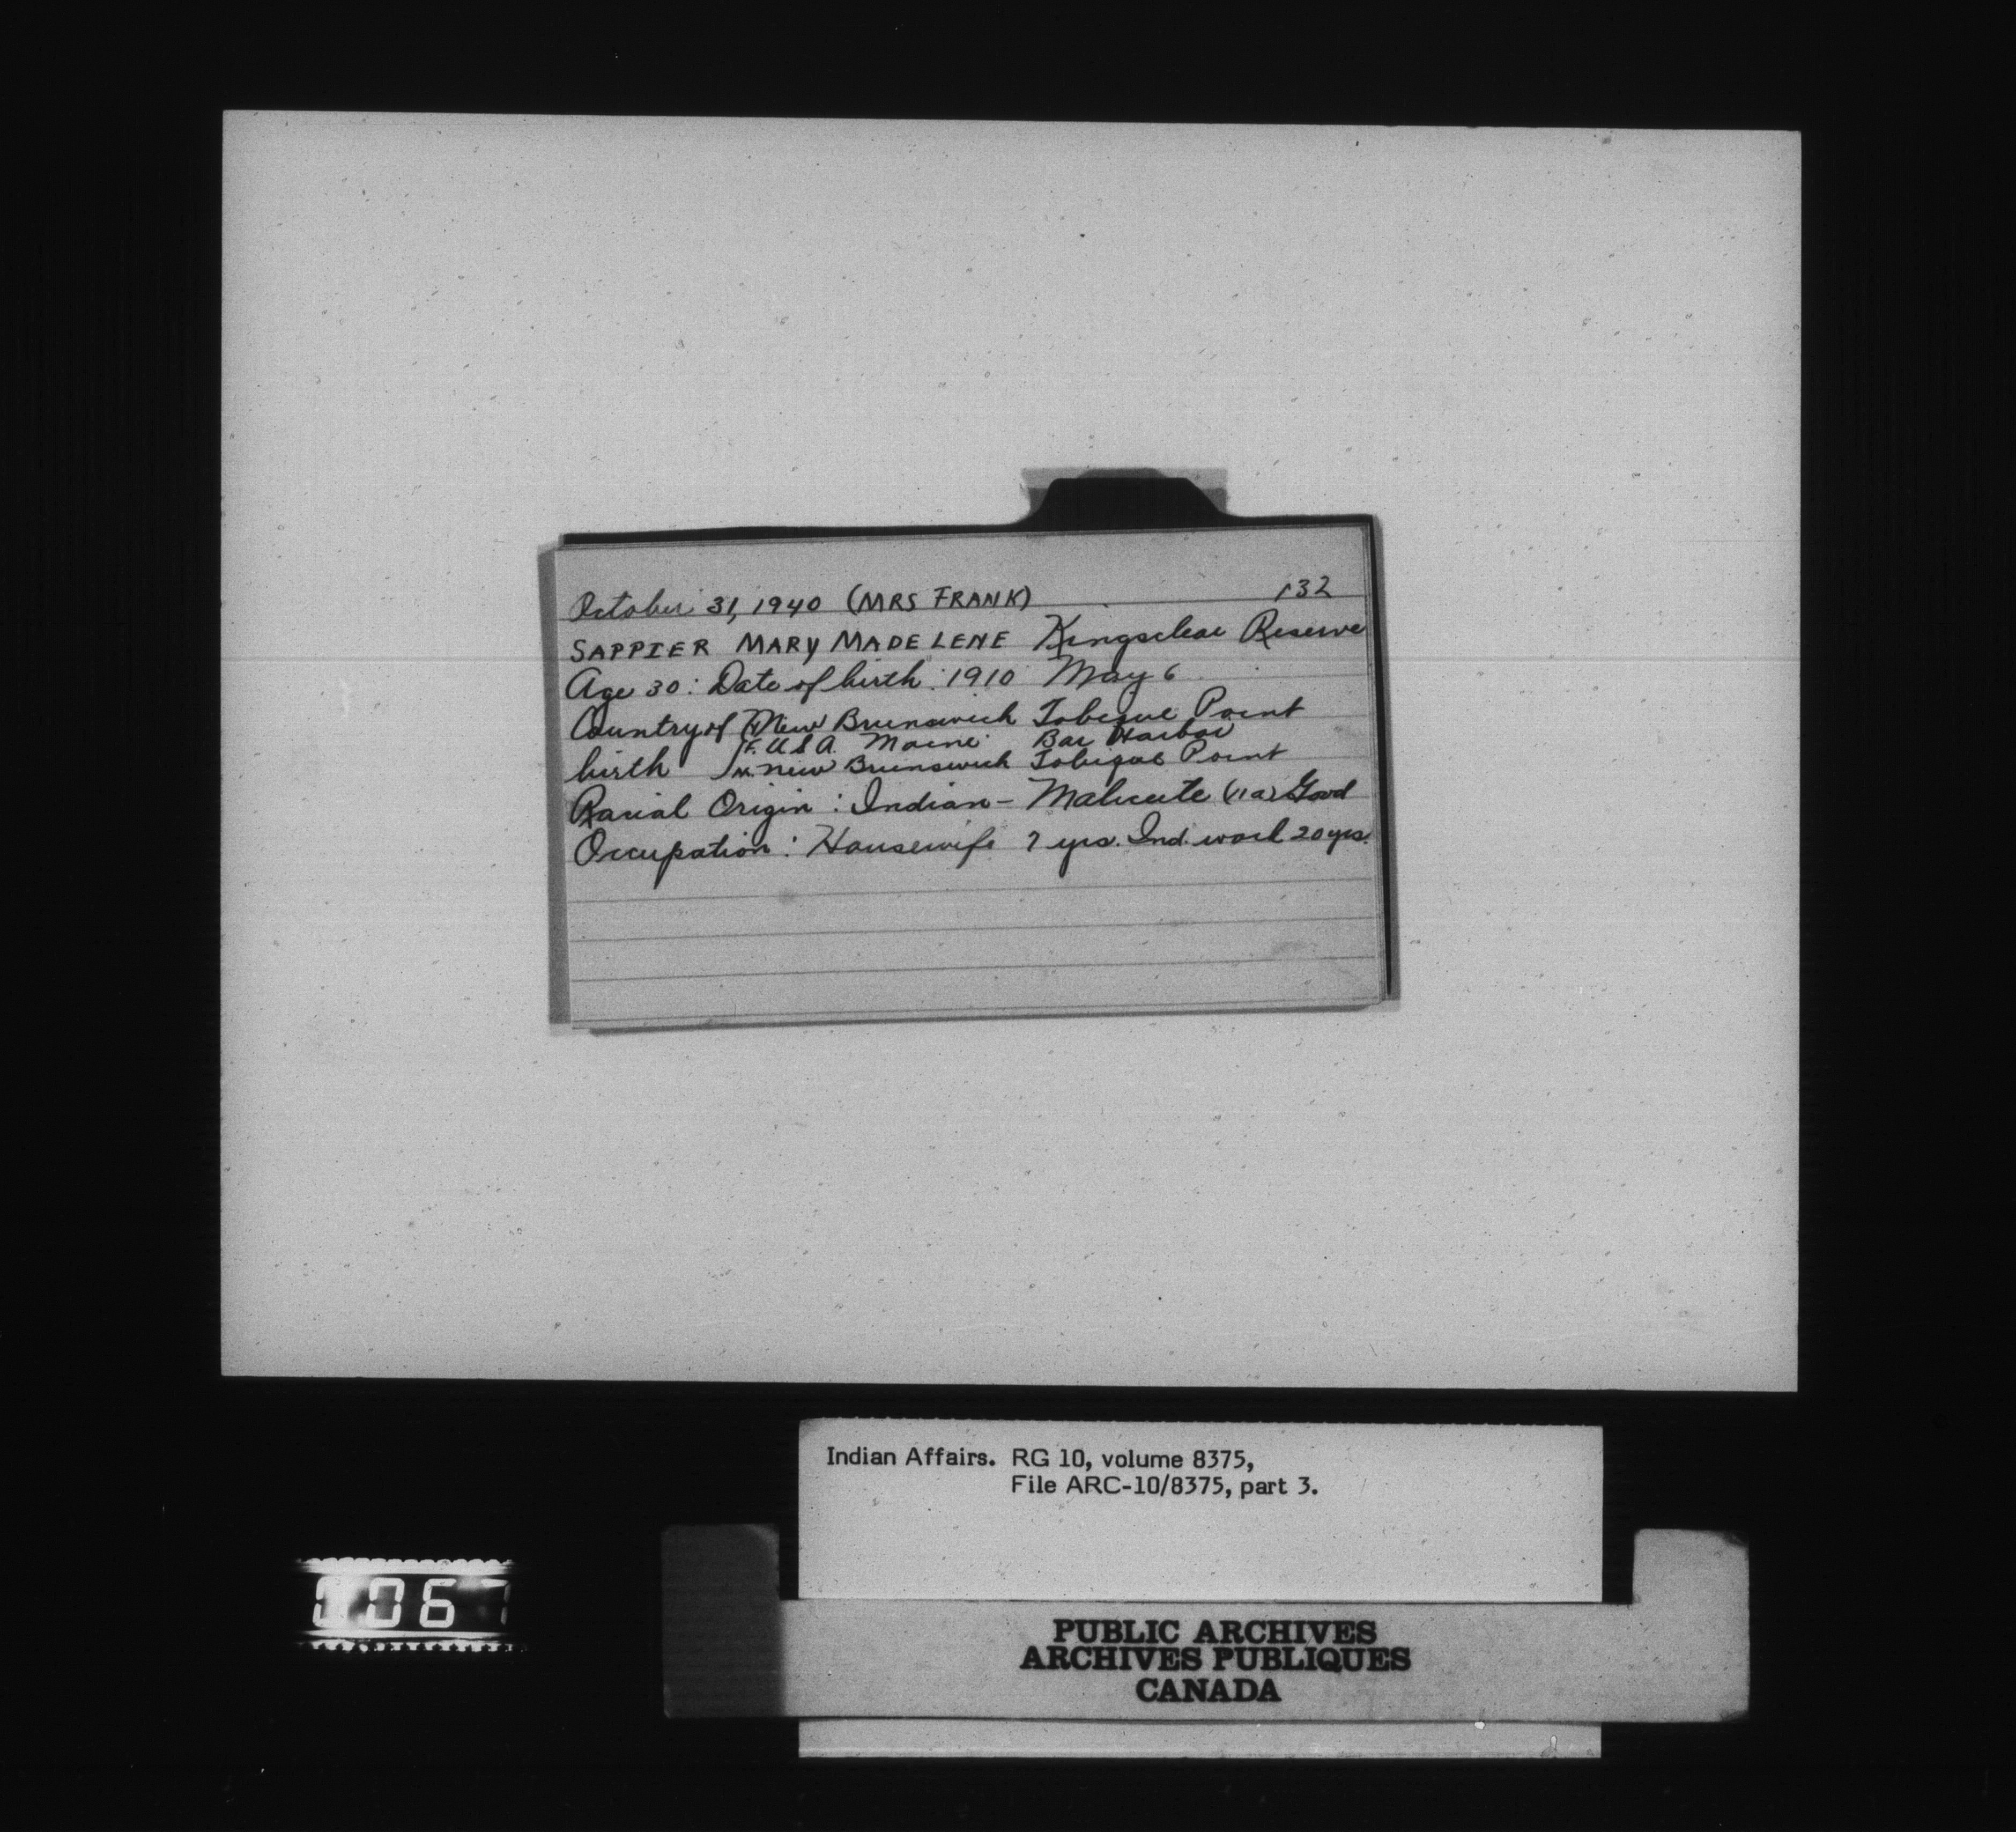 October 31, 1940 (MRS FRANK) 132
SAPPIER MARY MADELENE Kingsclear Reserve
Age 30: Date of birth: 1910 May 6
Country of New Brunswick Tobique Point
F. U S A. Maine Bar Harbor
birth M. New Brunswick Tobique Point
Racial Origin: Indian - Malicute (11a) Good
Occupation: Housewife 7 yrs. Ind. work 20 yrs.
Indian Affairs. RG 10, volume 8375,
File ARC-10/8375, part 3.
067
PUBLIC ARCHIVES
ARCHIVES PUBLIQUES
CANADA